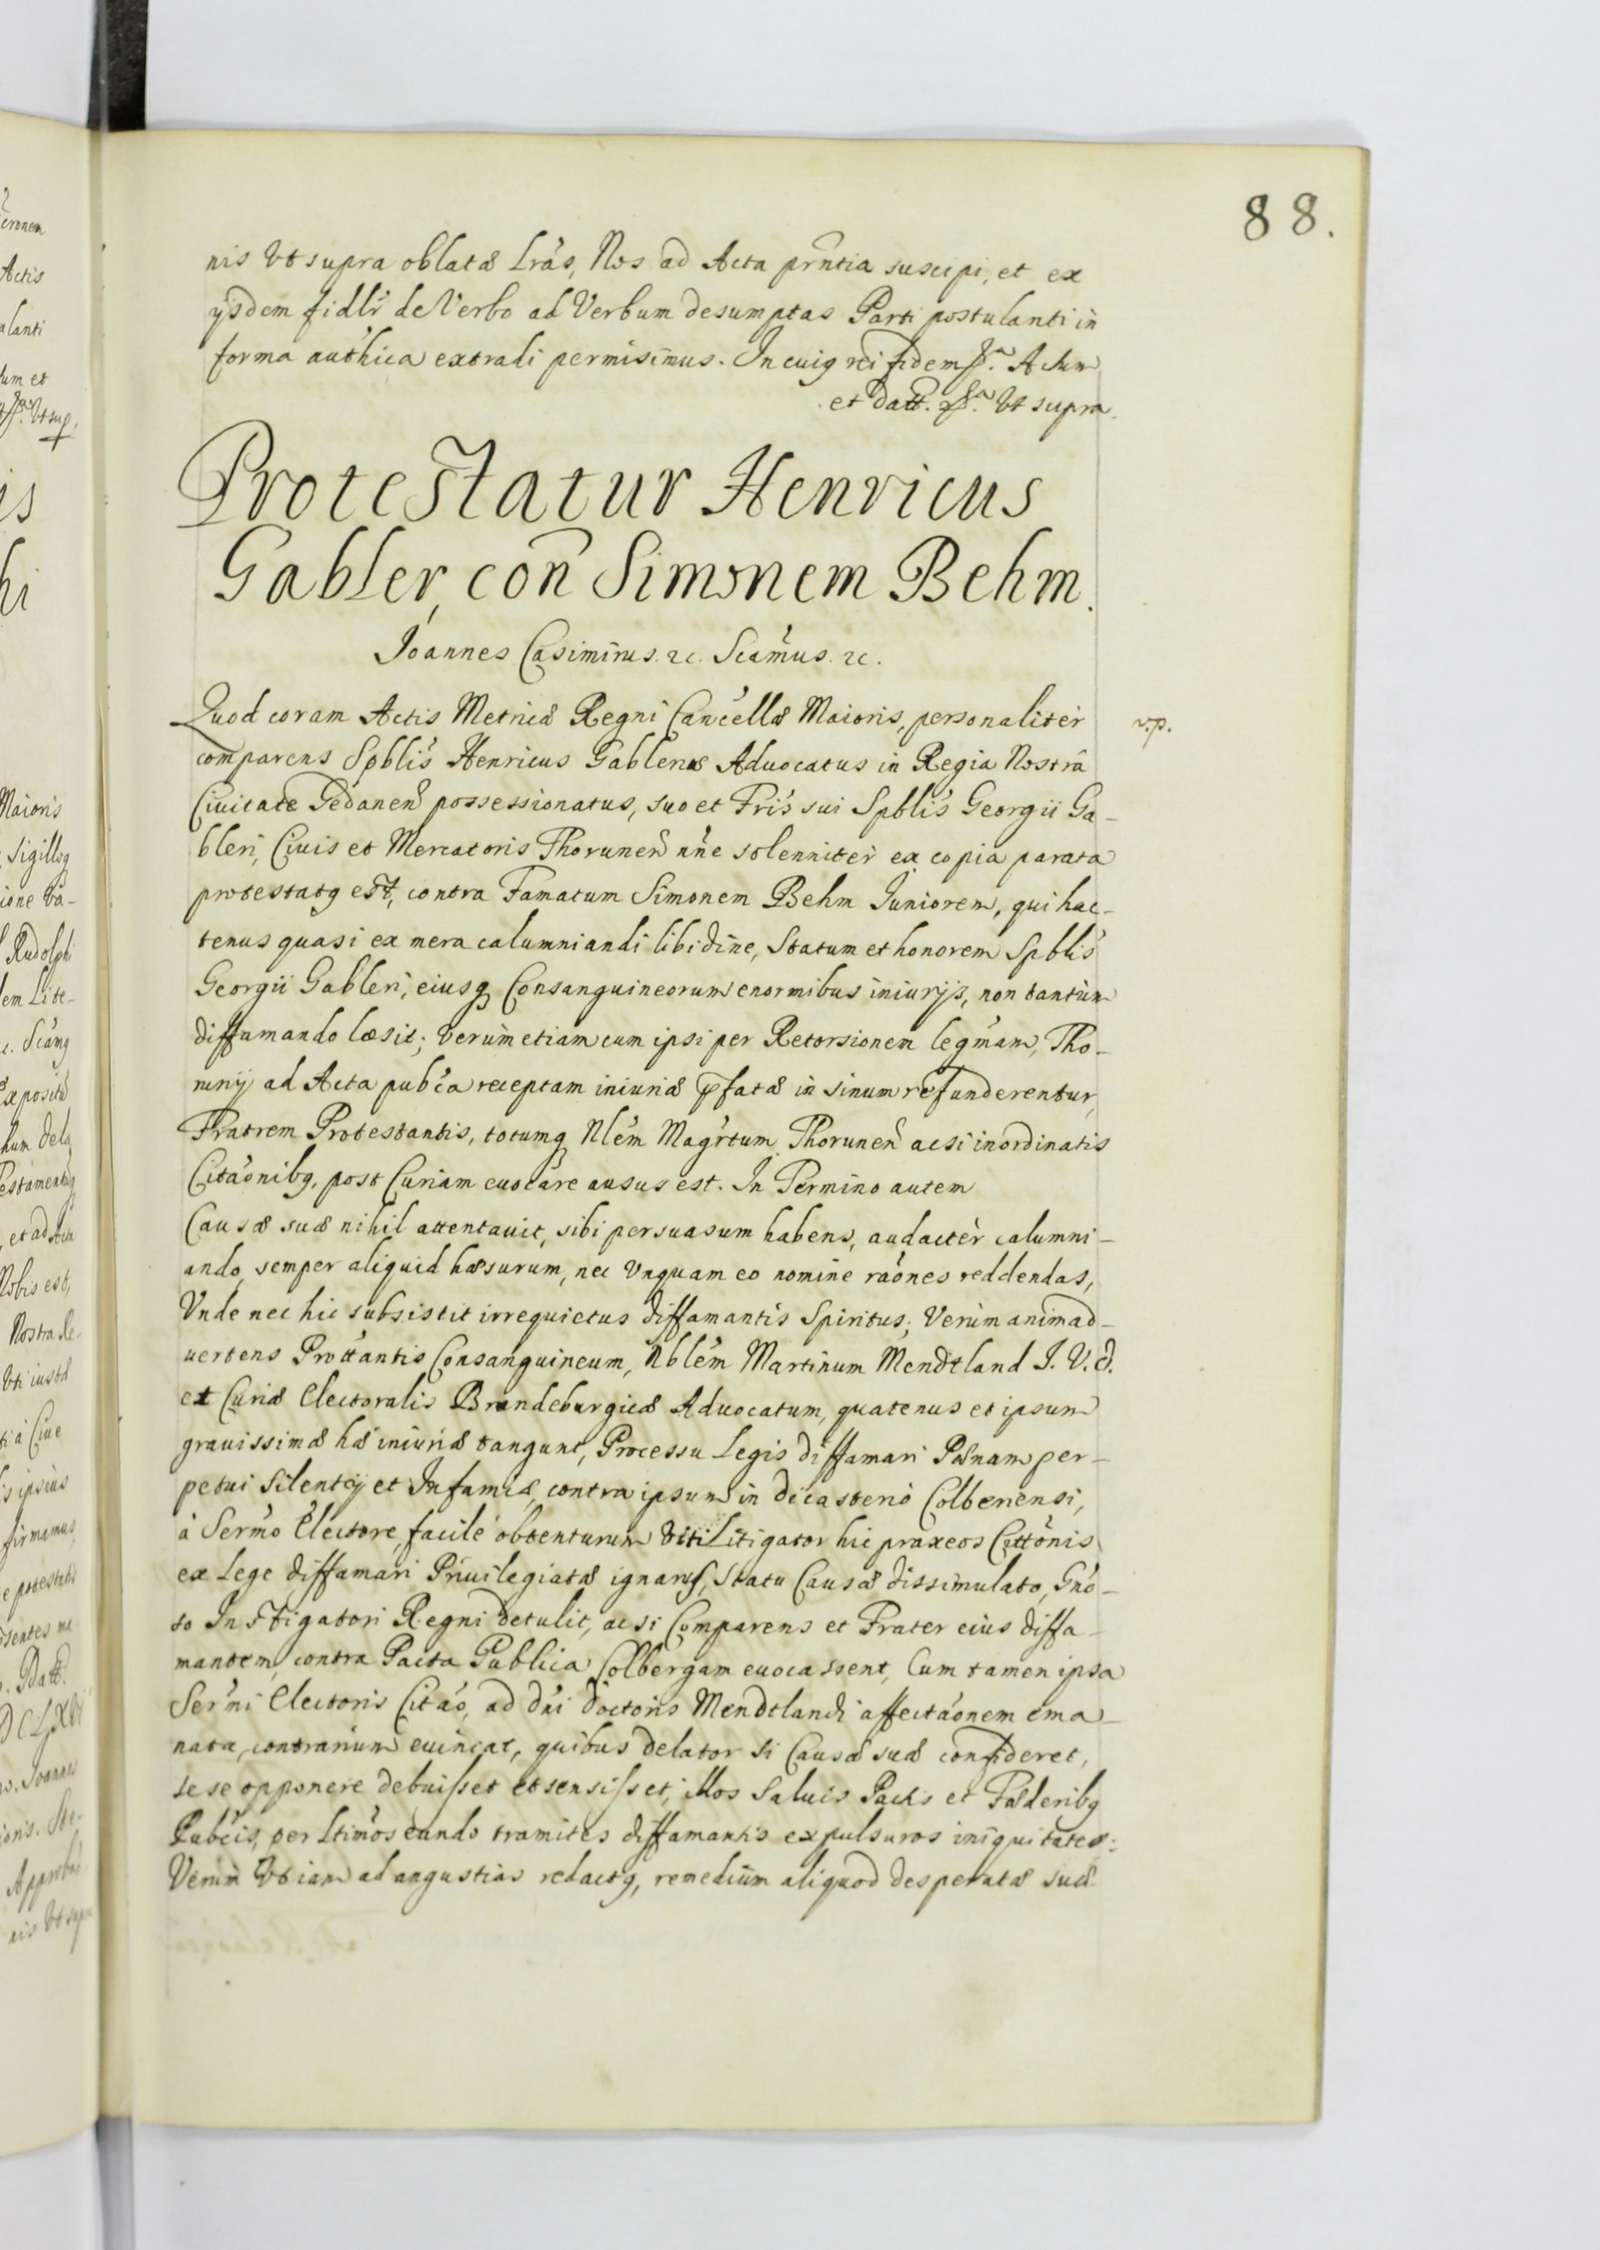 88.
nis Vt supra oblatæ Lrás, Nos ad Acta prńtia suscipi, et ex
ijsdem fidlr de Verbo ad Verbum desumptas Parti postulanti in
forma authica extradi permisimus. In cuig rei fidem Actum
et Datt. Vt supra.
Protestatur Henricus
Gabler, con Simonem Behm.
Joannes Casimirus. ꝛc. Scámus. ꝛc.
Quod coram Actis Metricæ Regni Cancellæ Maioris, personaliter
comparens Spblis Henricus Gablerus Aduocatus in Regia Nostrâ
Ciuitate Gedanen possessionatus, suo et Fris sui Spblis Georgii Ga-
bleri, Ciuis et Mercatoris Thorunen nne solenniter ex copia parata
protestatg est, contra Famatum Simonem Behm Iuniorem, qui hac-
tenus quasi ex mera calumniandi libidine, Statum et honorem Spblis
Georgii Gableri, eiusq Consanguineorum enormibus iniurijs, non tantùm
diffamando læsit; Verùm etiam cum ipsi per Retorsionem legmam, Tho-
runij ad Acta pubca receptam iniuriæ pfatæ in sinum refunderentur,
Fratrem Protestantis, totumq Nlém Magrtum Thorunen acsi inordinatis
Citaónibg, post Curiam euocare ausus est. In Termino autem
Causæ suæ nihil attentauit, sibi persuasum habens, audactèr calumni-
ando, semper aliquid hæsurum, nec Vnquam eo nomine raónes reddendas,
Vnde nec hic subsistit irrequietus diffamantis Spiritus; Verùm animad-
uertens Prottantis Consanguineum, Nblém Martinum Mendtland I. V. D.
et Curiæ Electoralis Brandeburgicæ Aduocatum, quatenus et ipsum
grauissimæ hæ iniuriæ tangunt, Processu Legis diffamari Pænam per-
petui Silentij et Infamiæ, contra ipsum in dicasterio Colbergensi,
à Sermo Electore, facile obtenturum VitiLitigator hic praxeos Cittonis
ex Lege diffamari Priuilegiatæ ignarus, Statu Causæ dissimulato, Gno-
so Instigatori Regni detulit, ac si Comparens et Frater eius diffa-
mantem, contra Pacta Publica Colbergam euocassent, Cum tamen ipsa
Sermi Electoris Citaó, ad Dni Doctoris Mendtlandi affectaónem ema-
nata, contrarium euincat, quibus delator si Causæ suæ confideret,
sese opponere debuisset et sensisset, illos Saluis Pactis et Fæderibg
Pubcis, per Ltimos eundo tramites diffamantis expulsuros iniquitates:
Verùm Vt iam ad angustias redactg, remedium aliquod desperatæ suæ
v.p.